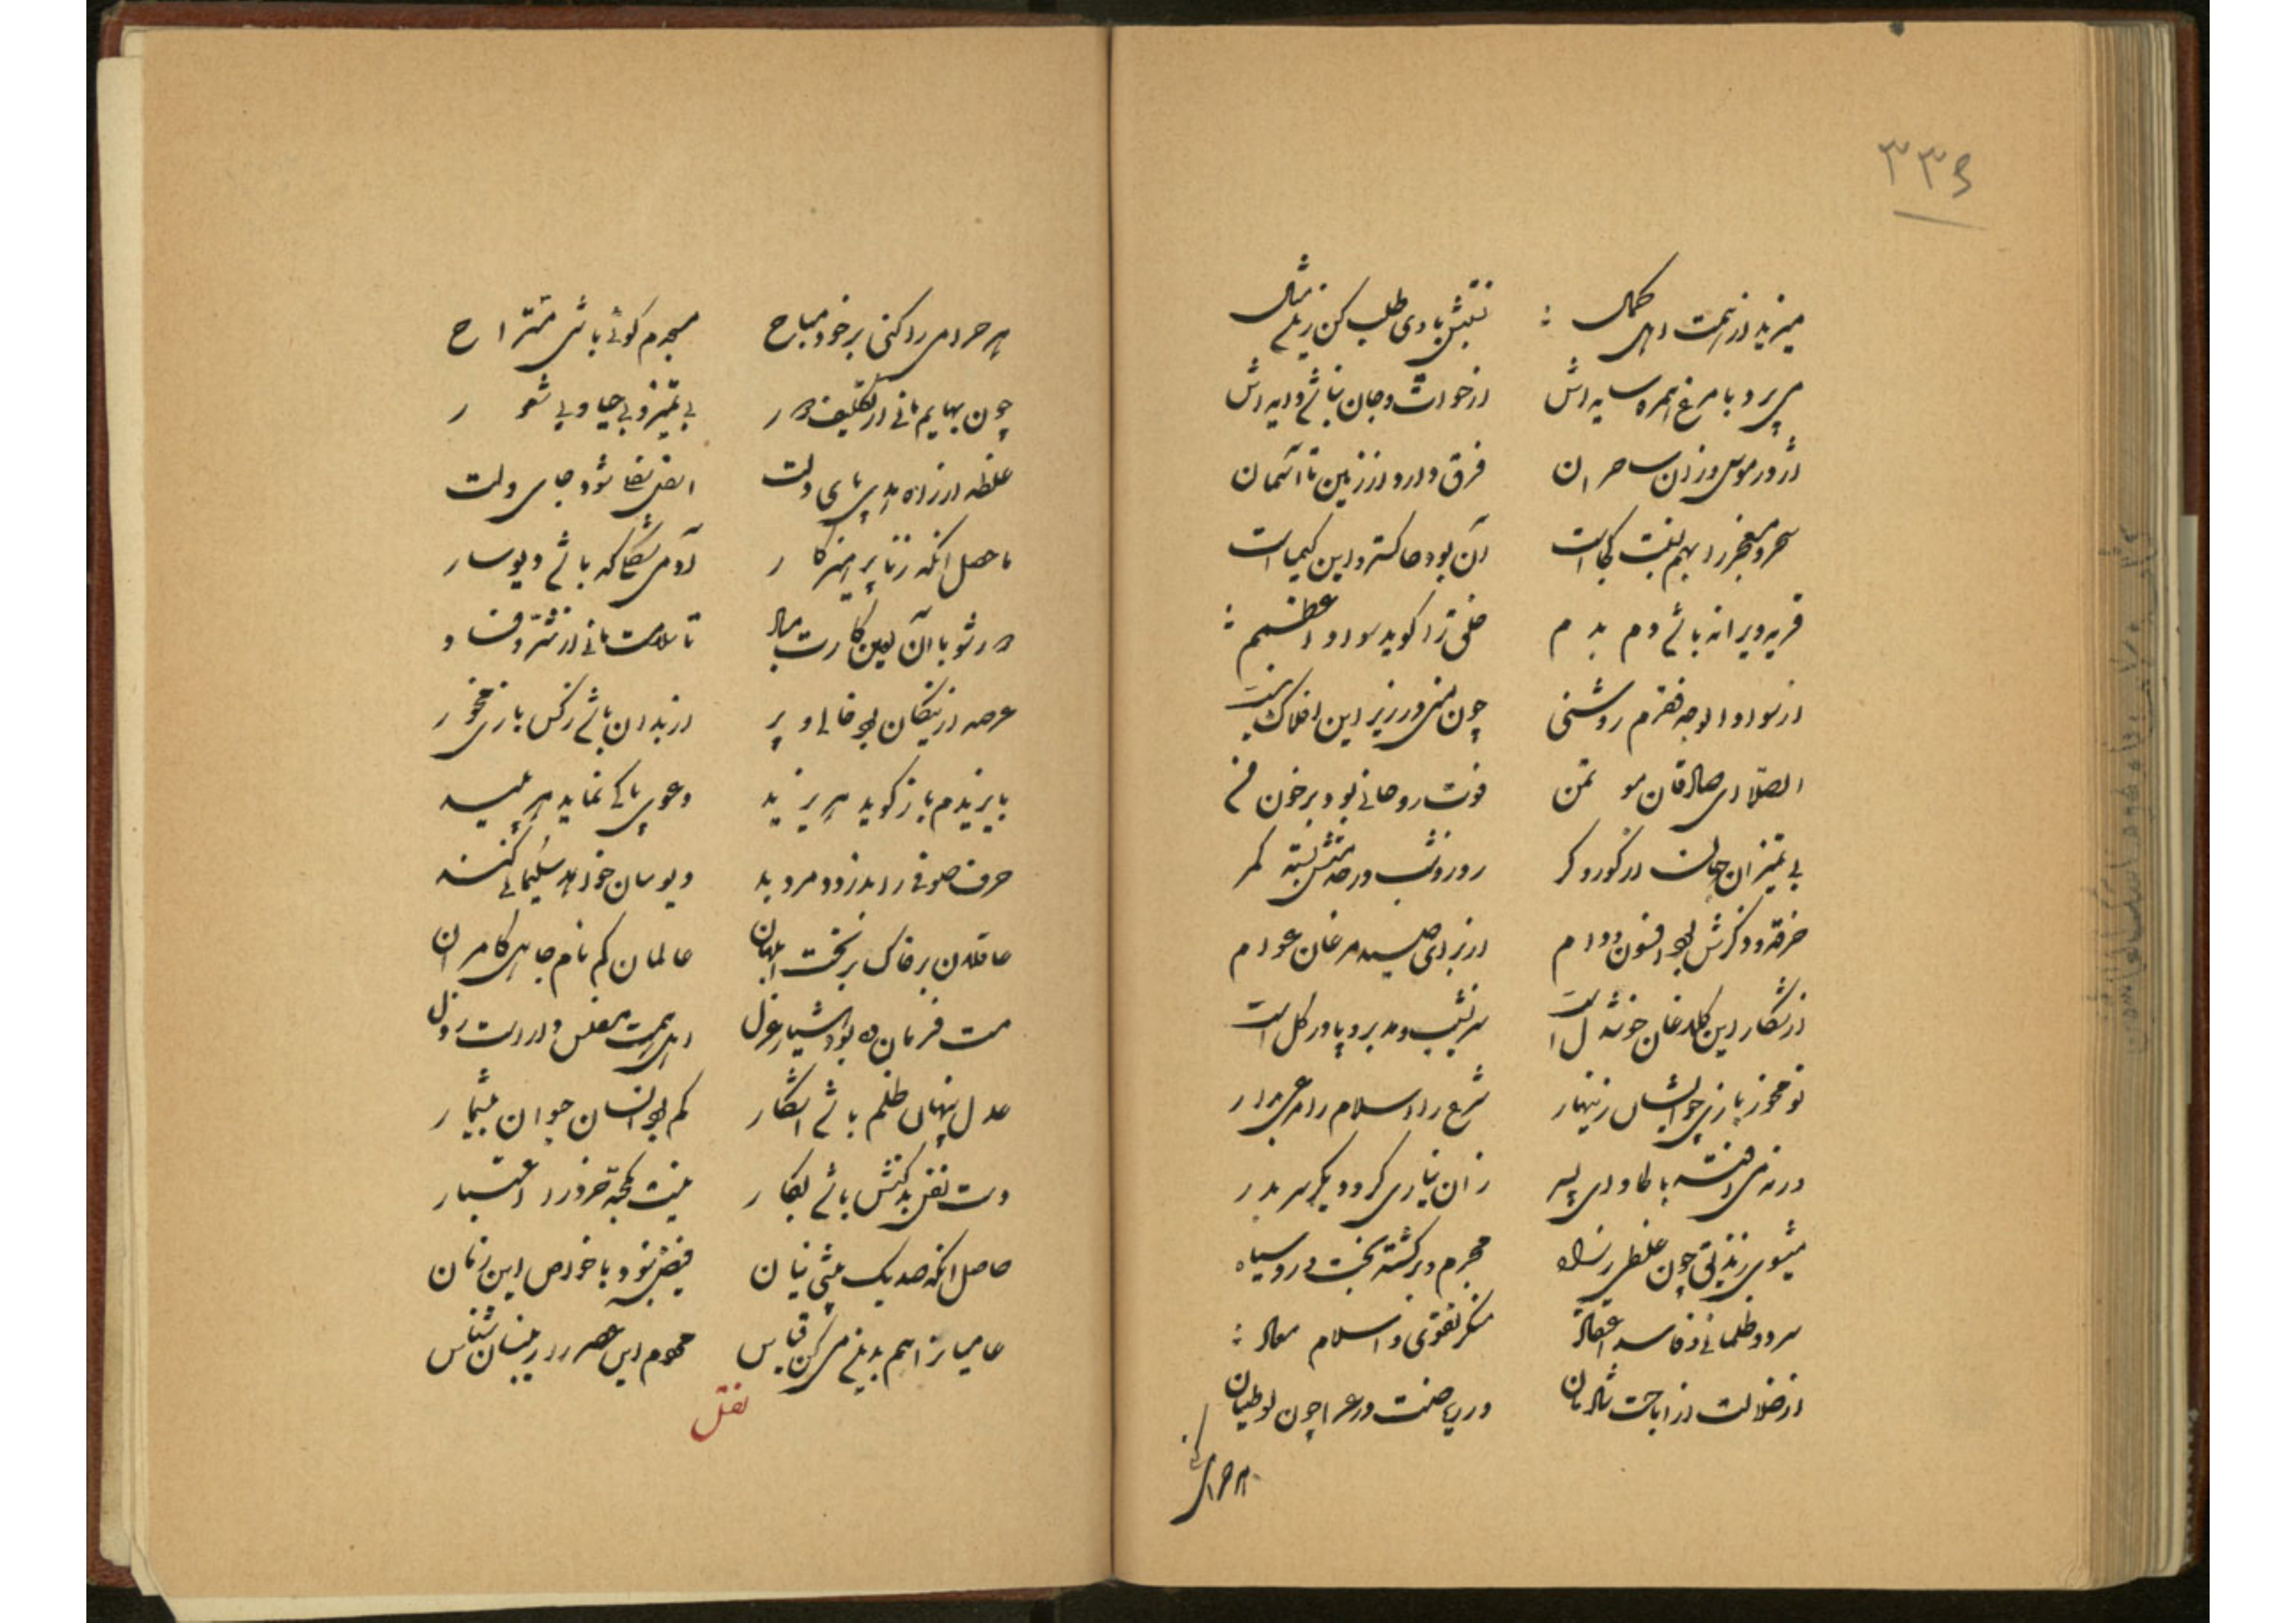 میزید از همت اهل کمال نقش بادی طلب کن زین مثال
می پرد با مرغ همره سایه اش از خواست و جان نباشد دایه اش
اژدر موسی و زان ساحران فرق دارد از زمین تا آسمان
سحر و معجز را بهم نسبت کجاست آن بود خاکستر و این کیمیاست
قریه ویرانه باشی دم بدم خلق ترا گوید سواد اعظم
از سواد الوجه فقرم روشنی چون منی در زیر این افلاک نیست
الصلا ای صادقان مؤتمن قوت روحانی بود بر خوان من
بی تمیزان جهان از کور و کر روز و شب در خدمتش بسته کمر
خرقه و ذکرش بود افسون و دام از برای صید مرغان عوام
از شکار این کلاغان خوشدل است سر نشیب و مدبر و پا در گل است
تو مخور بازی چو ایشان زینهار شرع را اسلام را مرعی بدار
ورنه می افتی بالحاد ای پسر زان نیاری کرد دیگر سر بدر
میشوی زندیق چون غلطی ز راه مجرم و برگشته بخت و روسیاه
سرد و ظلمانی و فاسد اعتقاد منکر تقوی و اسلام معاد
از ضلالت از اباحت شادمان در ریاضت در عزا چون لوطیان
هر حرامی
۳۳۵
هر حرامی را کنی بر خود مباح مجرم گوئی باشی مستراح
چون بهایم مانی از تکلیف دور بی تمیز و بی حیا و بی شعور
غلطد از راه هدی پای دلت اسفل سفلی شود جای دلت
ماحصل آنکه ز ناپرهیزکار آدمی شکلی که باشد دیوسار
دور شو با آن لعین کارت مباد تا سلامت مانی از شر و فساد
عرصه از نیکان بود خالی و پر از بدان باشد ز کس بازی مخور
بایزیدم باز گوید هر یزید دعوی پاکی نماید هر پلید
حرف صوفی را بدزدد مرد بد دیوسان خواهد سلیمانی کند
عاقلان بر خاک بر تخت ابلهان عالمان گم نام جاهل کامران
مست فرمان ده بود هشیار عزل اهل همت مفلس و داراست رذل
عدل پنهان ظلم باشد آشکار کم بود انسان حیوان بیشمار
دست نفس بدکنش باشد بکار نیست کمحبه خرد را اعتبار
حاصل آنکه صد یک پیشینیان فیض نبود با خواص این زمان
عامیانرا هم بدینی میکن قیاس محموم این عصر را زینسان شناس
نقل